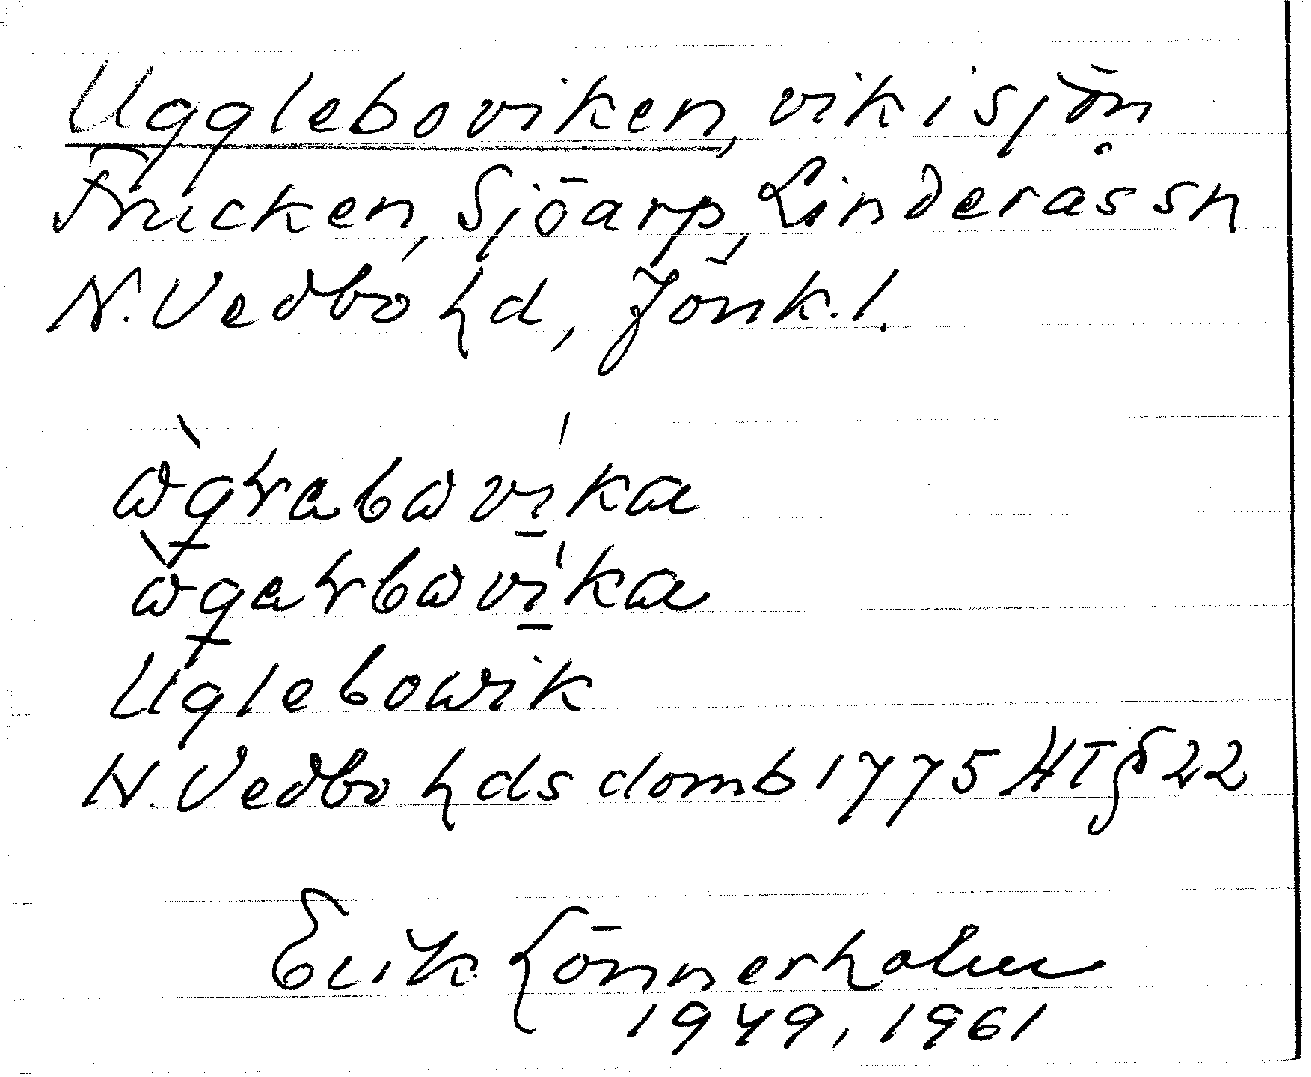 Uggleboviken, vik i sjön
Frucken, Sjöarp, Linderås sn
N. Vedbo hd, Jönk. l.
Uglebowik
N. Vedbo hds domb 1775 HT § 22
Erik Lönnerholm
1949, 1961